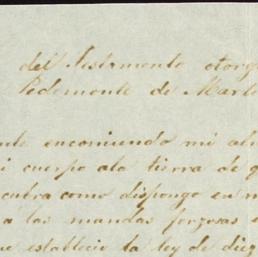 del Testamento otorg
Pedemonte de Marti
nte encomiendo mi al
i cuerpo ala tierra de q
cubra como dispongo en m
a las mandas forzosas
ue establecio la ley de diez